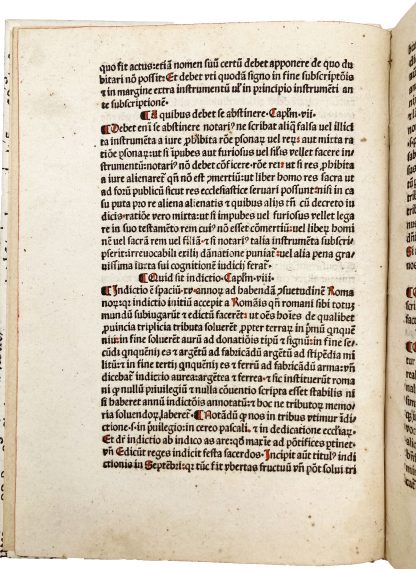 quo fit actus: etiã nomen suũ certũ debet apponere de quo du
bitari nõ possit: Et debet vti quodã signo in fine subscriptõis
⁊ in margine extra instrumentũ ul' in principio instrumẽti an
te subscriptionẽ.
¶ A quibus debet se abstinere. Capl'm. vii.
¶ Debet em̃ se abstinere notari⁹ ne scribat aliq̃ falsa uel illici
ta instrumẽta a iure ꝓhibita rõe ꝑsonaꝝ uel reꝝ: aut mixta ra
tiõe ꝑsonaꝝ: ut si ĩpubes aut furiosus uel filı̃s vellet facere in
strumentũ: notari⁹ nõ debet cõficere: rõe rei: ut si res ꝓhibita
a iure alienaret̃ qñ nõ est ꝯmertiũ: ut liber homo res sacra ut
ad forũ publicũ sicut res ecclesiastice seruari possunt: nisi in ca
su puta pro re aliena alienatis ⁊ quibus alijs cũ decreto iu
dicis: ratiõe vero mixta: ut si impubes uel furiosus vellet lega
re in suo testamẽto rem cui⁹ nõ esset cõmertiũ: uel liberũ homi
nẽ uel sacrã rem uel ⁊ si notari⁹ talia instrumẽta subscri
pserit: irreuocabili exilij dãnatione puniat̃: uel alia pena gra
uissima iuxta sui cognitionẽ iudicij feraт̃.
¶ Quid sit indictio. Capl'm. viii.
¶ Indictio ẽ spaciũ .xv. annoꝝ ad habendã ꝯsuetudinẽ Roma
noꝝ: indictio initiũ accepit a Romãis qñ romani sibi totuꝫ
mundũ subiugarũt ⁊ edictũ fecerũt: ut oẽs hoĩes de qualibet
ꝓuincia triplicia tributa soluerẽt ꝓpter terraꝝ in pᵐũ qnquẽ
niũ: in fine soluerẽt aurũ ad donatiõis tipũ ⁊ signũ: in fine se
cũdi qnquẽnij es ⁊ argẽtũ ad fabricãdũ argẽtũ ad stipẽdia mi
litũ: ⁊ in fine tertij qnquẽnij es ⁊ ferrũ ad fabricãdũ arma: vñ
dicebat̃ indictio aurea: argẽtea ⁊ ferrea. ⁊ sic instituerũt roma
ni nullũ priuilegiũ ⁊ nulla cõuentio scripta esset stabilis ni
si haberet annũ indictiõis annotatũ: ⁊ hoc ne tributoꝝ memo
ria soluendoꝝ laberet̃. ¶ Notãdũ nos in tribus vtimur ĩdi
ctione .s. in ꝓuilegio: in cereo pascali. ⁊ in dedicatione ecclĩaꝝ.
Et dr̃ indictio ab indico as are: maxĩe ad põtifices ptinet.
vñ Edicũt reges indicit festa sacerdos. Incipit aũt titul⁹ indi
ctionis in Septẽbri: tũc fit vbertas fructuũ vñ põt solui tri